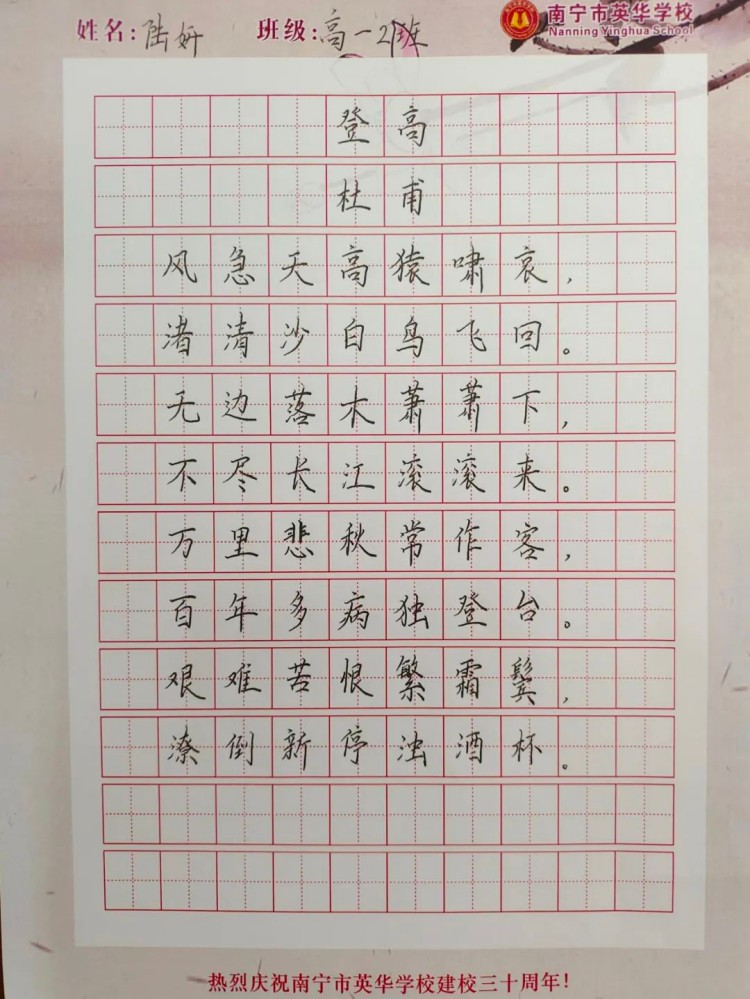 姓名:陆妍 班级:高一2班
南宁市英华学校
Nanning Yinghua School
登高
杜甫
风急天高猿啸哀,
渚清沙白鸟飞回。
无边落木萧萧下,
不尽长江滚滚来。
万里悲秋常作客,
百年多病独登台。
艰难苦恨繁霜鬓,
潦倒新停浊酒杯。
热烈庆祝南宁市英华学校建校三十周年!